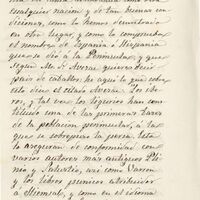 cualquier nacion y de tan buenas con-
diciones, como lo hemos demostrado
en otro lugar, y como lo comprueba
el nombre de España ó Hispania
que se dió á la Península, y que
segun Mr. d'Averac quiere decir
pais de caballos: he aquí lo que sobre
esto dice el citado Averac. Los ibe-
ros, y tal vez los ligurios han cons-
tituido una de las primeras bases
de la poblacion peninsular, á la
que se sobrepuso la feria, esto
lo aseguran de conformidad con
varios autores mas antiguos Pli-
nio y Salustio, asi como Varron
y los libros púnicos atribuidos
á Hiemsal, y como en el idioma